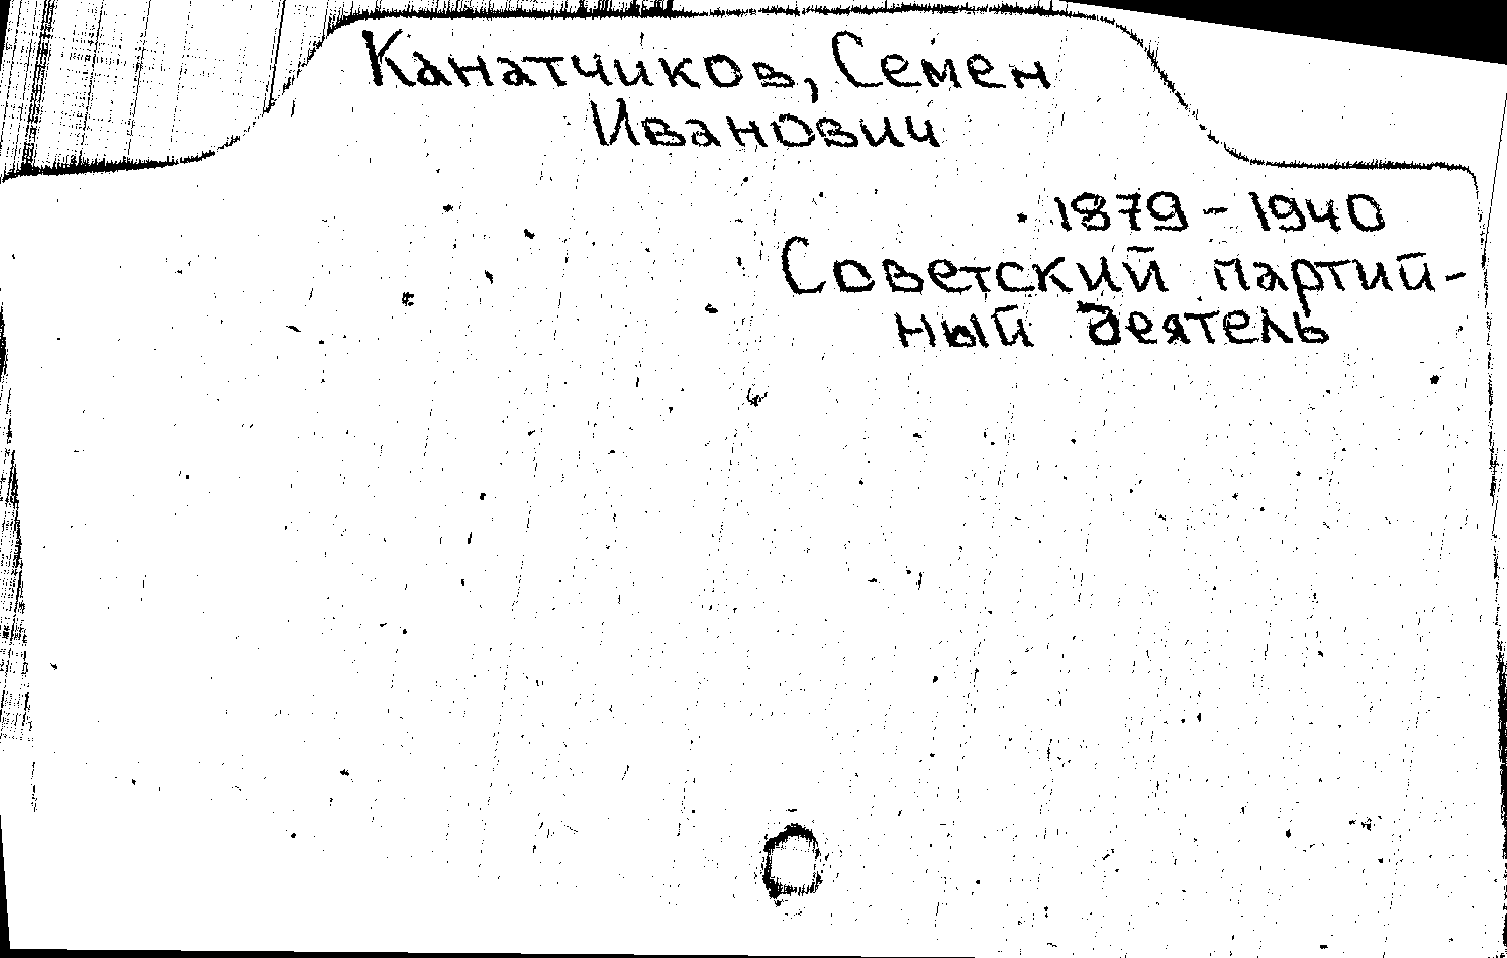 Канатчиков, Семен
Иванович
1879 - 1940
Советский партий-
ный деятель